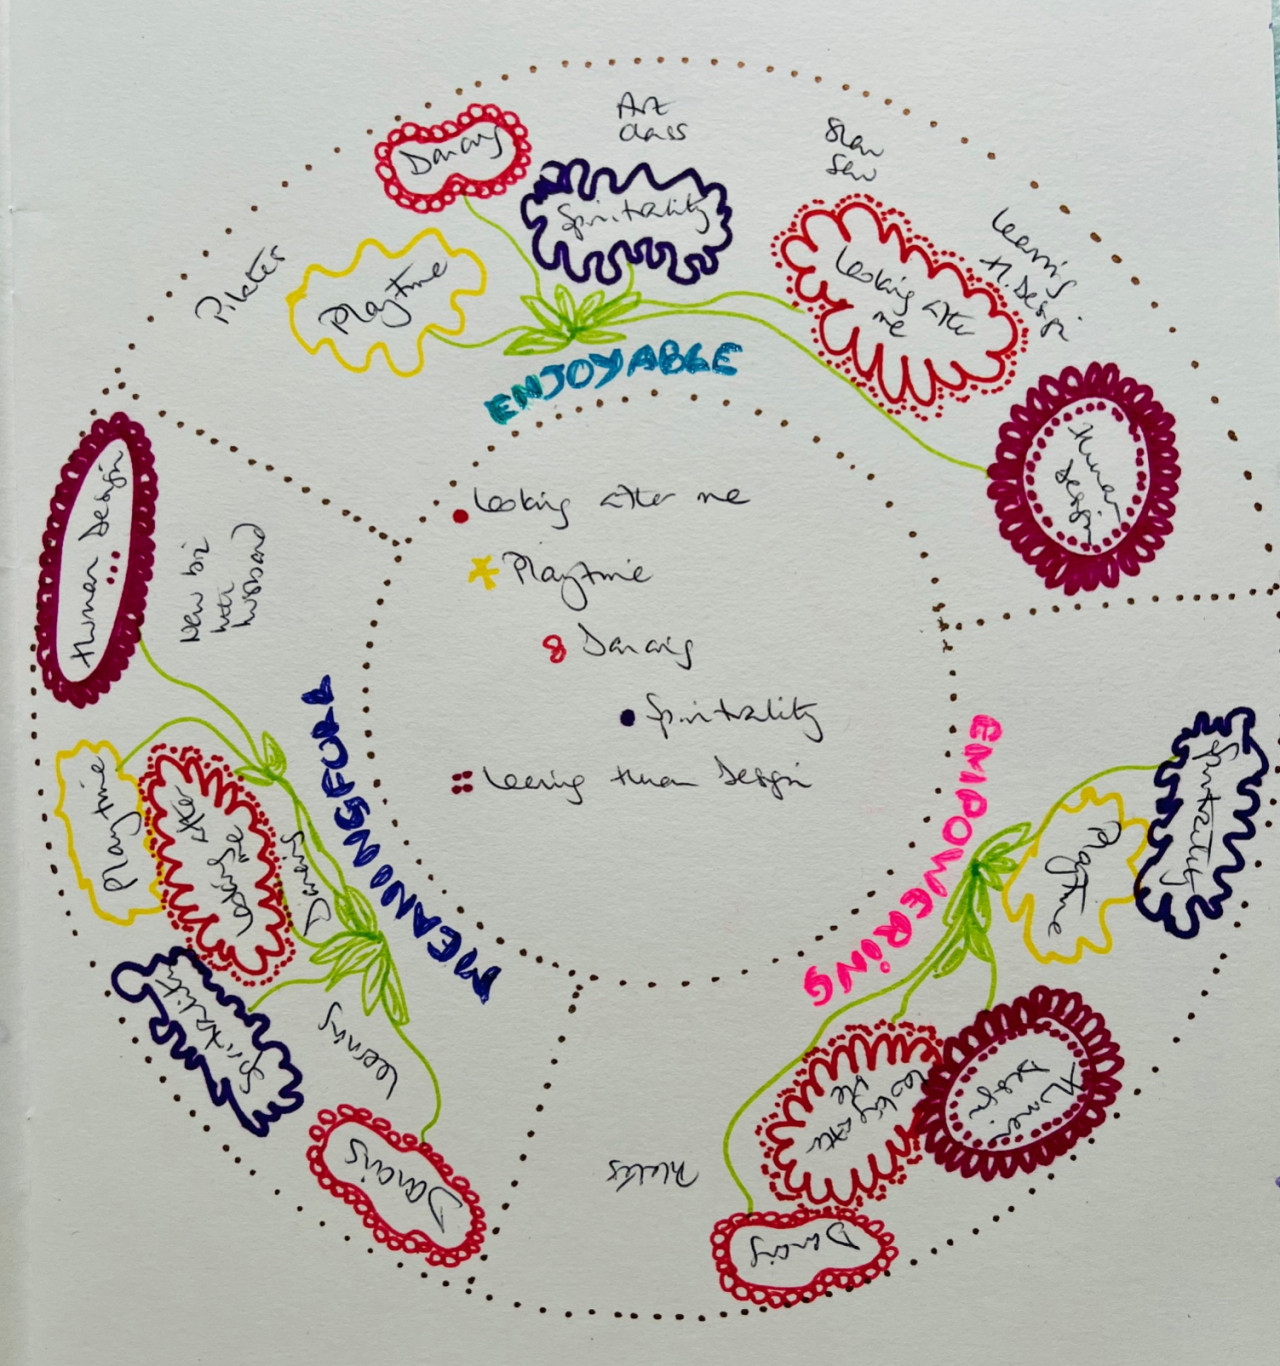 Dancing
Art
class
Slow
Sew
Spirituality
Learning
H. Design
Pilates
Playtime
Looking after
me
ENJOYABLE
Human
Design
Looking after me
Playtime
Dancing
Spirituality
Learning Human Design
Human Design
New biz
with
husband
MEANINGFULL
Playtime
Looking after
me
Dancing
Spirituality
Learning
Dancing
EMPOWERING
Spirituality
Playtime
Human
Design
Looking after
me
Pilates
Dancing